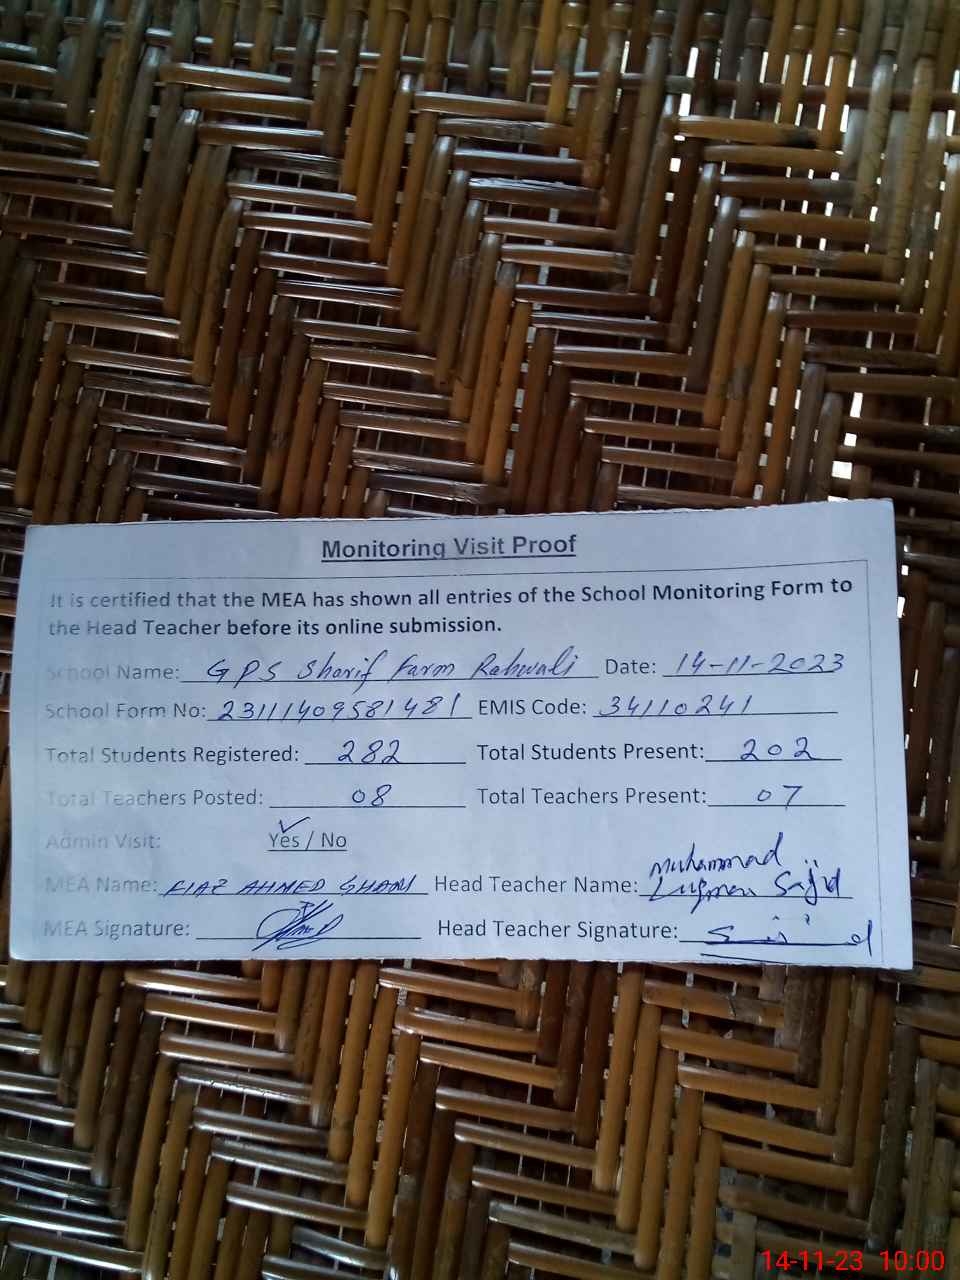 Monitoring Visit Proof
It is certified that the MEA has shown all entries of the School Monitoring Form to
the Head Teacher before its online submission.
School Name: GPS Sharif Farm Rahwali Date: 14-11-2023
School Form No: 23111409581481 EMIS Code: 34110241
Total Students Registered: 282 Total Students Present: 202
Total Teachers Posted: 08 Total Teachers Present: 07
Admin Visit: Yes / No
MEA Name: FIAZ AHMED GHANI Head Teacher Name: Muhammad
Luqman Sajid
MEA Signature: Head Teacher Signature: Sajid
14-11-23 10:00